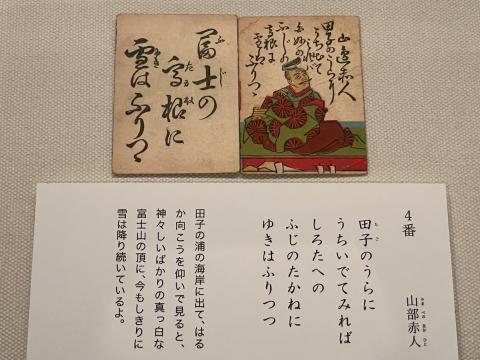 田子のうらに
ふじの
高根に
富士の
高根に
雪はふりつゝ
4番
山部赤人
田子のうらに
うちいでてみれば
しろたへの
ふじのたかねに
ゆきはふりつつ
田子の浦の海岸に出て、はる
か向こうを仰いで見ると、
神々しいばかりの真っ白な
富士山の頂に、今もしきりに
雪は降り続いているよ。